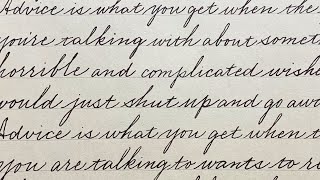 Advice is what you get when the
you're talking with about somet
horrible and complicated wishe
would just shut up and go awa
Advice is what you get when t
you are talking to wants to re